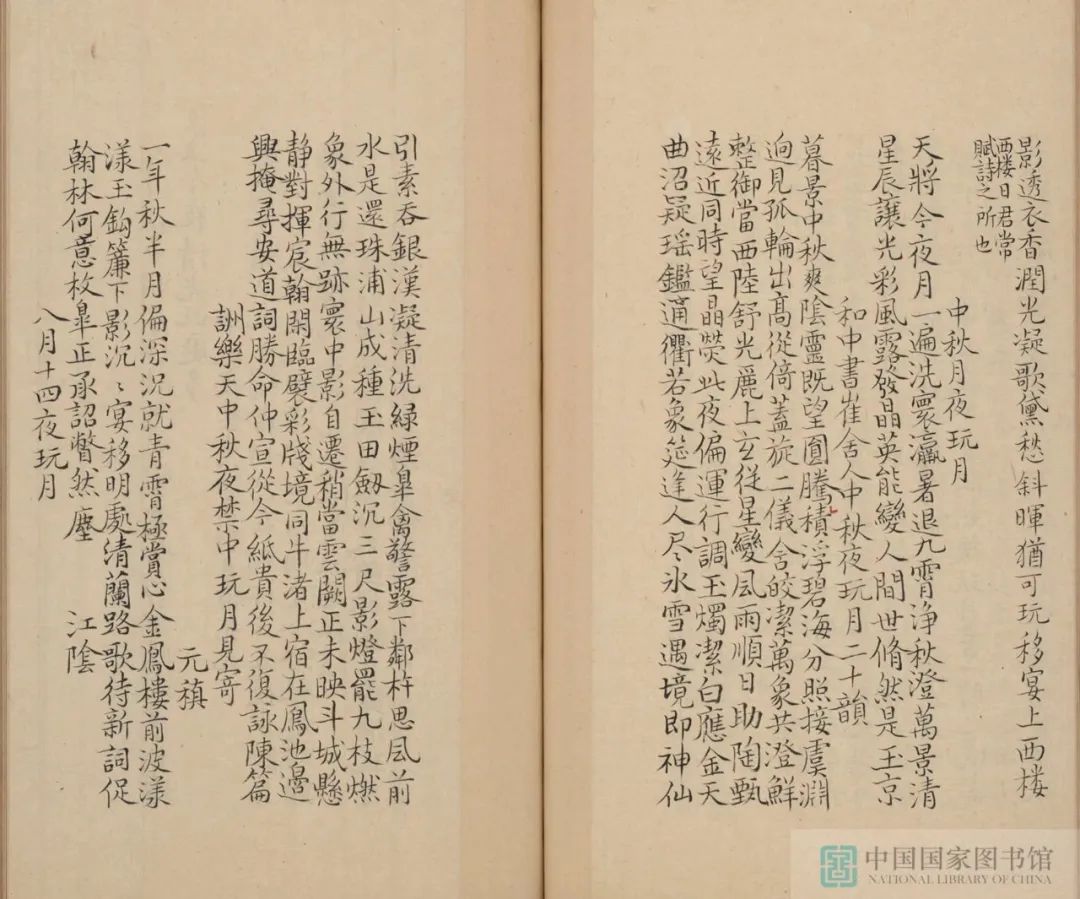 影透衣香潤光凝歌黛愁斜暉猶可玩移宴上西楼
西楼日君常
賦詩之所也
中秋月夜玩月
天將今夜月一遍洗寰瀛暑退九霄淨秋澄萬景清
星辰讓光彩風露發晶英能變人間世翛然是玉京
和中書崔舍人中秋夜玩月二十韻
暮景中秋爽陰靈既望圓騰積浮碧海分照接虞淵
逈見孤輪出高從倚蓋旋二儀舍皎潔萬象共澄鮮
整御當西陸舒光麗上玄従星變風雨順日助陶甄
遠近同時望晶熒此夜偏運行調玉燭潔白應金天
曲沼疑瑶鑑通衢若象筵逢人尽氷雪遇境即神仙
引素吞銀漢凝清洗緑煙臯禽警露下鄰杵思風前
水是還珠浦山成種玉田劔沉三尺影燈罷九枝燃
象外行無跡寰中影自遷稍當雲闕正未映斗城懸
静對揮宸翰閑臨襞彩牋境同牛渚上宿在鳳池邊
興掩尋安道詞勝命仲宣從今紙貴後不復詠陳篇
詶樂天中秋夜禁中玩月見寄
元稹
一年秋半月偏深況就青霄極賞心金鳳樓前波漾
漾玉鈎簾下影沉〻宴移明處清蘭路歌待新詞促
翰林何意枚臯正承詔瞥然塵 江陰
八月十四夜玩月
中国国家图书馆
NATIONAL LIBRARY OF CHINA